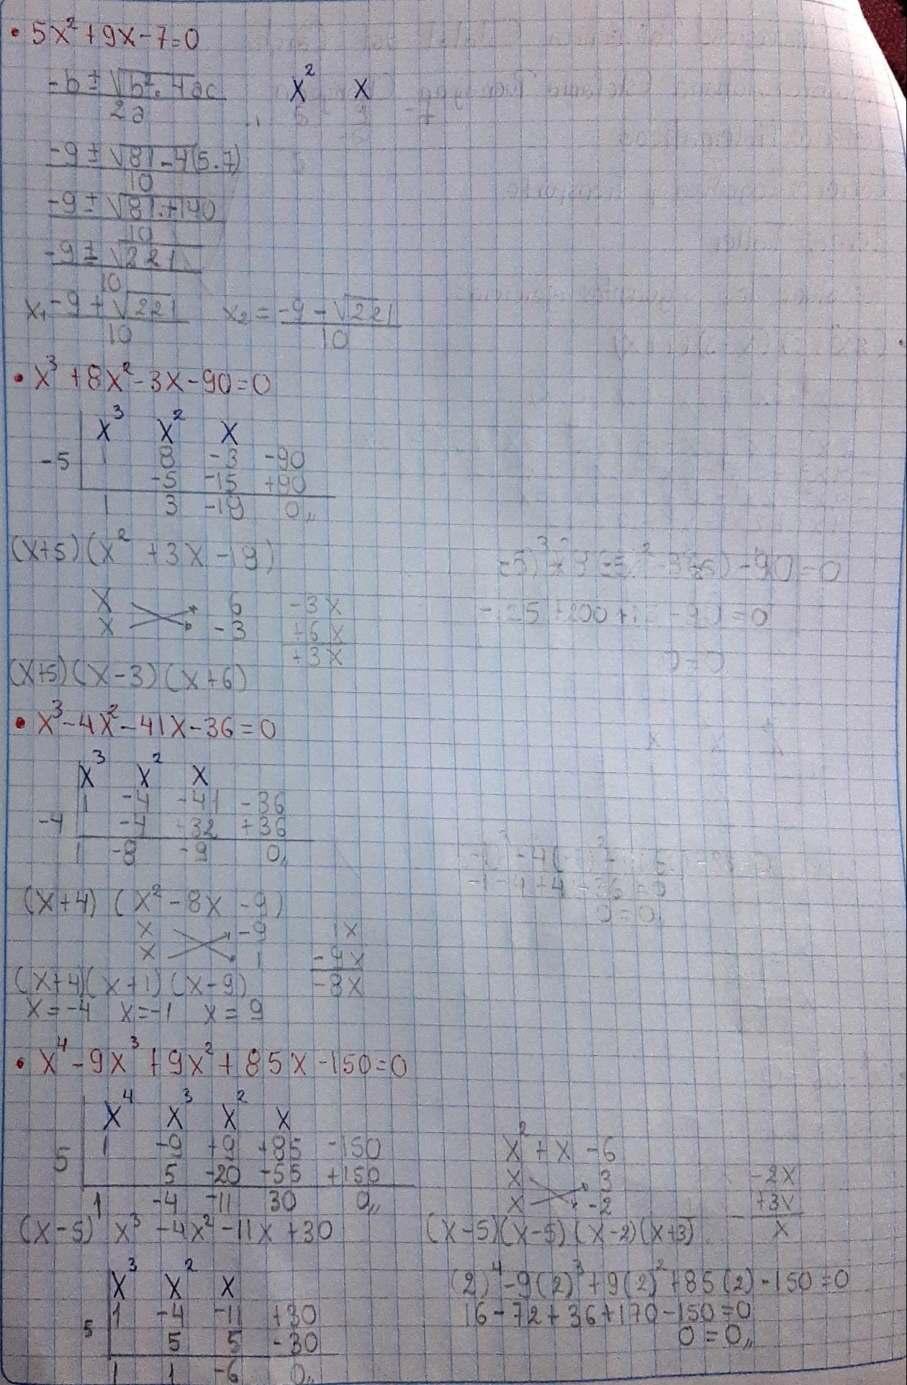 • 5x² + 9x - 7 = 0
-b ± √b² - 4ac x² x
2a 5 9 -7
-9 ± √81 - 4(5.7)
10
-9 ± √81 + 140
10
-9 ± √221
10
x₁ -9 + √221 x₂ = -9 - √221
10 10
• x³ + 8x² - 3x - 90 = 0
x³ x² x
-5 1 8 -3 -90
-5 -15 +90
1 3 -19 0,,
(x+5) (x² + 3x - 19)
x 6 -3x
x -3 +6x
+3x
(x+5) (x-3) (x+6)
• x³ - 4x² - 41x - 36 = 0
x³ x² x
1 -4 -41 -36
-4 -4 32 +36
1 -8 -9 0,
(x+4) (x² - 8x - 9)
x -9 1x
x 1 -9x
-8x
(x+4)(x+1)(x-9)
x = -4 x = -1 x = 9
• x⁴ - 9x³ + 9x² + 85x - 150 = 0
x⁴ x³ x² x
5 1 -9 +9 +85 -150
5 -20 -55 +150
1 -4 -11 30 0,,
(x-5) x³ - 4x² - 11x + 30
x³ x² x
5 1 -4 -11 +30
5 5 -30
1 1 -6 0,,
x² + x - 6
x 3 -2x
x -2 +3x
x
(x-5)(x-5)(x-2)(x+3)
(2)⁴ - 9(2)³ + 9(2)² + 85(2) - 150 = 0
16 - 72 + 36 + 170 - 150 = 0
0 = 0,,